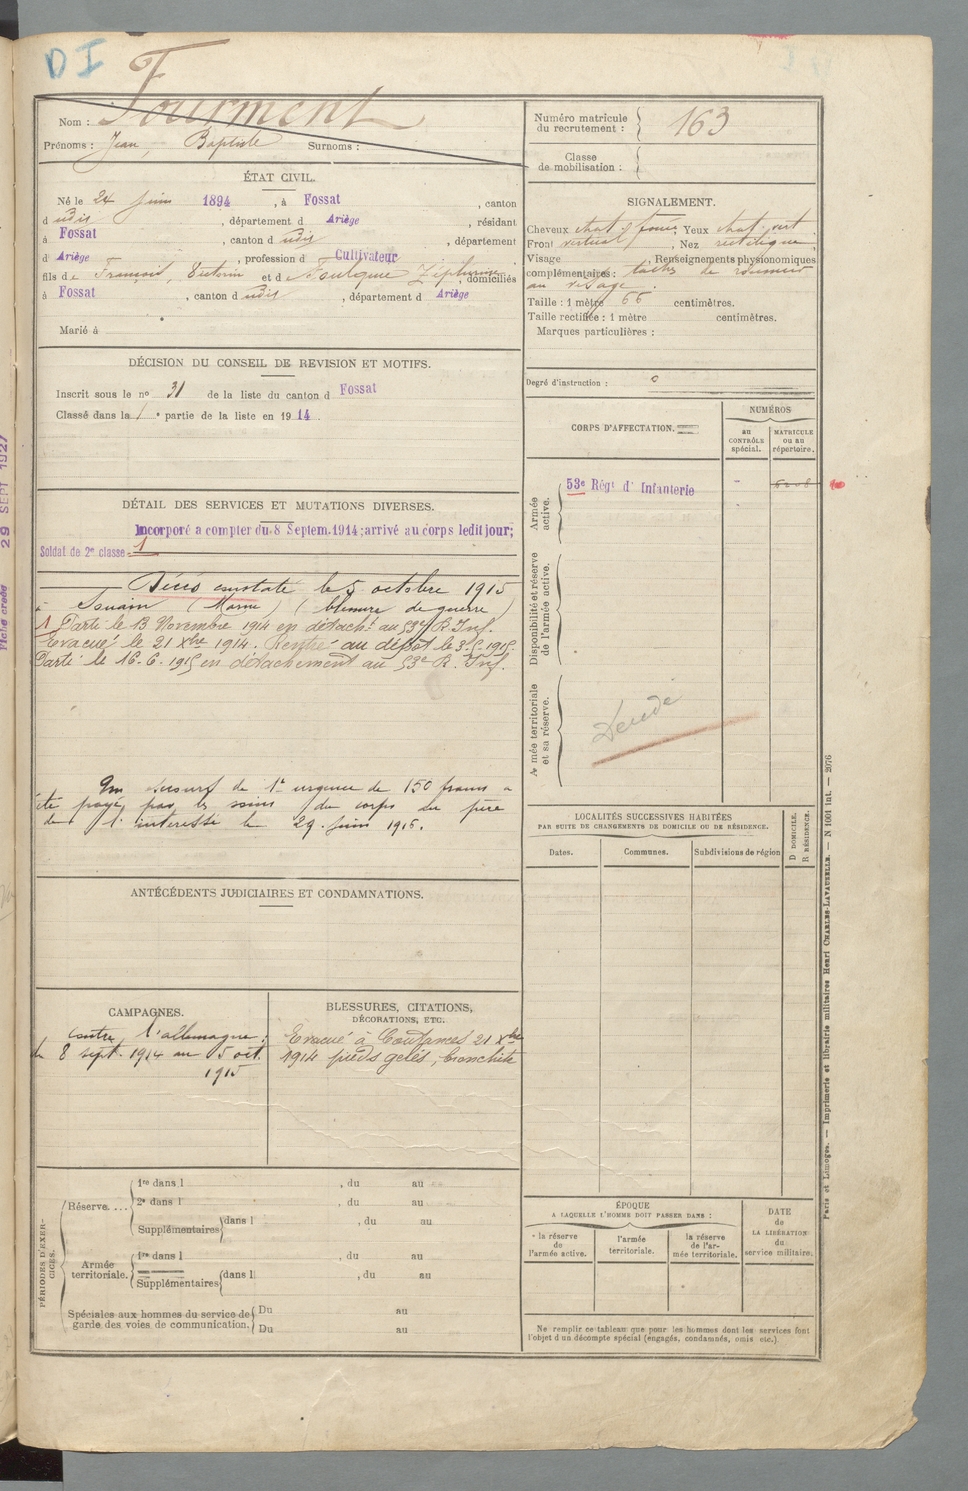 DI
Nom : Fourment
Prénoms : Jean, Baptiste Surnoms :
Numéro matricule
du recrutement : 163
Classe
de mobilisation :
ÉTAT CIVIL.
Né le 24 juin 1894, à Fossat, canton
d udit, département d Ariège, résidant
à Fossat, canton d udit, département
d' Ariège, profession d Cultivateur
fils de François, Victorin et de Foulque Zéphirine, domiciliés
à Fossat, canton d udit, département d Ariège
Marié à
SIGNALEMENT.
Cheveux chat. foncé, Yeux chat. vert
Front vertical, Nez rectiligne
Visage Renseignements physionomiques
complémentaires : tâches de rousseur
au visage.
Taille : 1 mètre 66 centimètres.
Taille rectifiée : 1 mètre centimètres.
Marques particulières :
Degré d'instruction : 0
DÉCISION DU CONSEIL DE REVISION ET MOTIFS.
Inscrit sous le no 31 de la liste du canton d Fossat
Classé dans la 1 e partie de la liste en 1914
CORPS D'AFFECTATION.
NUMÉROS
au
CONTRÔLE
spécial.
MATRICULE
ou au
répertoire.
Armée
active.
53e Régt d' Infanterie
Disponibilité et réserve
de l'armée active.
Armée territoriale
et sa réserve.
DÉTAIL DES SERVICES ET MUTATIONS DIVERSES.
Incorporé a compter du 8 Septem. 1914; arrivé au corps ledit jour;
Soldat de 2e classe 1
Décès constaté le 5 octobre 1915
à Souain (Marne) (blessure de guerre)
1 Parti le 13 Novembre 1914 en détacht au 53e R. Inf.
Evacué le 21 Xbre 1914. Rentré au dépôt le 3-5-1915.
Parti le 16-6-1915 en détachement au 53e R. Inf.
Un secours de 1e urgence de 150 francs a
été payé par les soins du corps au père
de l'intéressé le 29 juin 1916.
ANTÉCÉDENTS JUDICIAIRES ET CONDAMNATIONS.
LOCALITÉS SUCCESSIVES HABITÉES
PAR SUITE DE CHANGEMENTS DE DOMICILE OU DE RÉSIDENCE.
Dates. Communes. Subdivisions de région
D DOMICILE.
R RÉSIDENCE.
CAMPAGNES.
contre l'allemagne :
du 8 sept. 1914 au 5 oct.
1915
BLESSURES, CITATIONS,
DÉCORATIONS, ETC.
Evacué à Coutances 21 Xbre
1914 pieds gelés, bronchite
PÉRIODES D'EXERCICES.
Réserve....
1re dans l , du au
2e dans l , du au
Supplémentaires dans l , du au
Armée
territoriale.
1re dans l , du au
Supplémentaires dans l , du au
Spéciales aux hommes du service de
garde des voies de communication.
Du au
Du au
ÉPOQUE
A LAQUELLE L'HOMME DOIT PASSER DANS :
la réserve
de
l'armée active.
l'armée
territoriale.
la réserve
de l'ar-
mée territoriale.
DATE
de
LA LIBÉRATION
du
service militaire.
Ne remplir ce tableau que pour les hommes dont les services font
l'objet d'un décompte spécial (engagés, condamnés, omis etc.).
Paris et Limoges. — Imprimerie et librairie militaires Henri CHARLES-LAVAUZELLE. — N 1001 int. — 2076
Fiche créée 29 SEPT 1927